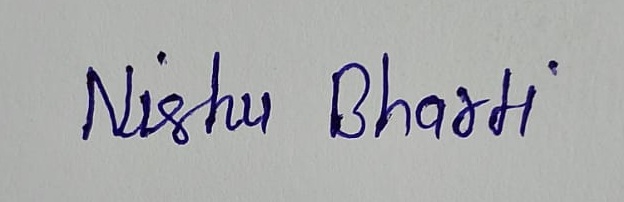 Nishu Bharti